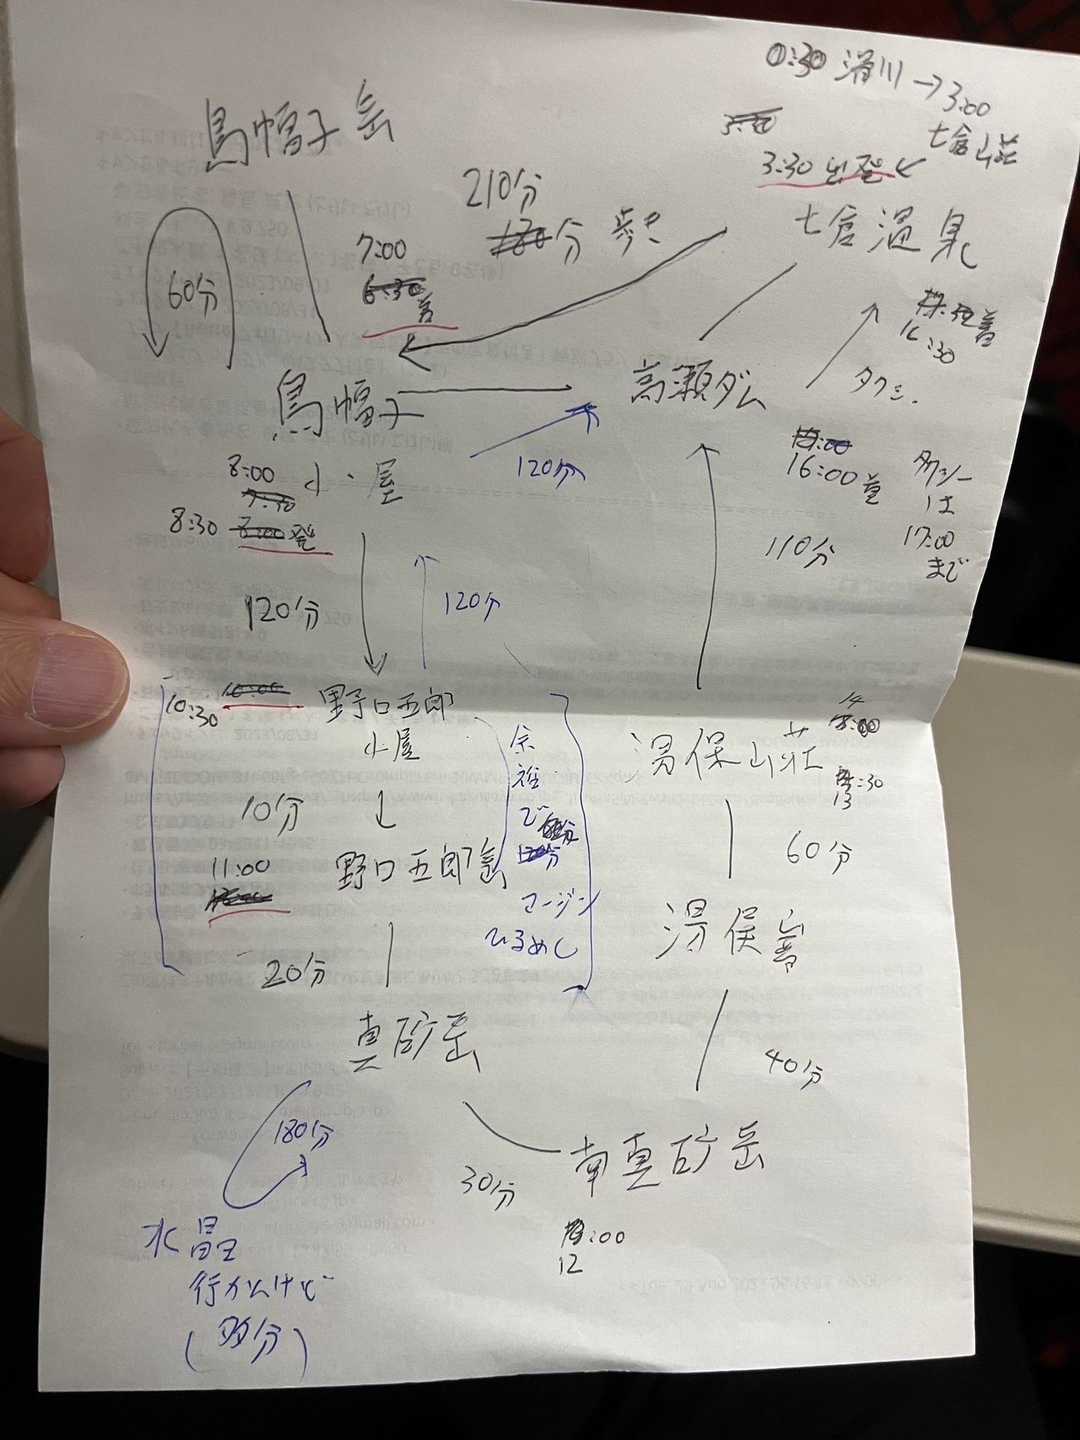 0:30 滑川→3:00
七倉山荘
3:30 出発
七倉温泉
烏帽子岳
210分
180分 歩き
7:00
6:30
着
60分
烏帽子
小屋
高瀬ダム
120分
タクシー
16:30
着
8:00
7:30
8:30 8:00発
16:00着
タクシー
は
17:00
まで
110分
120分
120分
10:30 10:00
野口五郎
小屋
10分
11:00
野口五郎岳
余裕
で
マージン
ひるめし
20分
真砂岳
180分
水晶
行かんけど
(多分)
30分
南真砂岳
12:00
40分
湯俣岳
60分
湯俣山荘
14:00
13:30